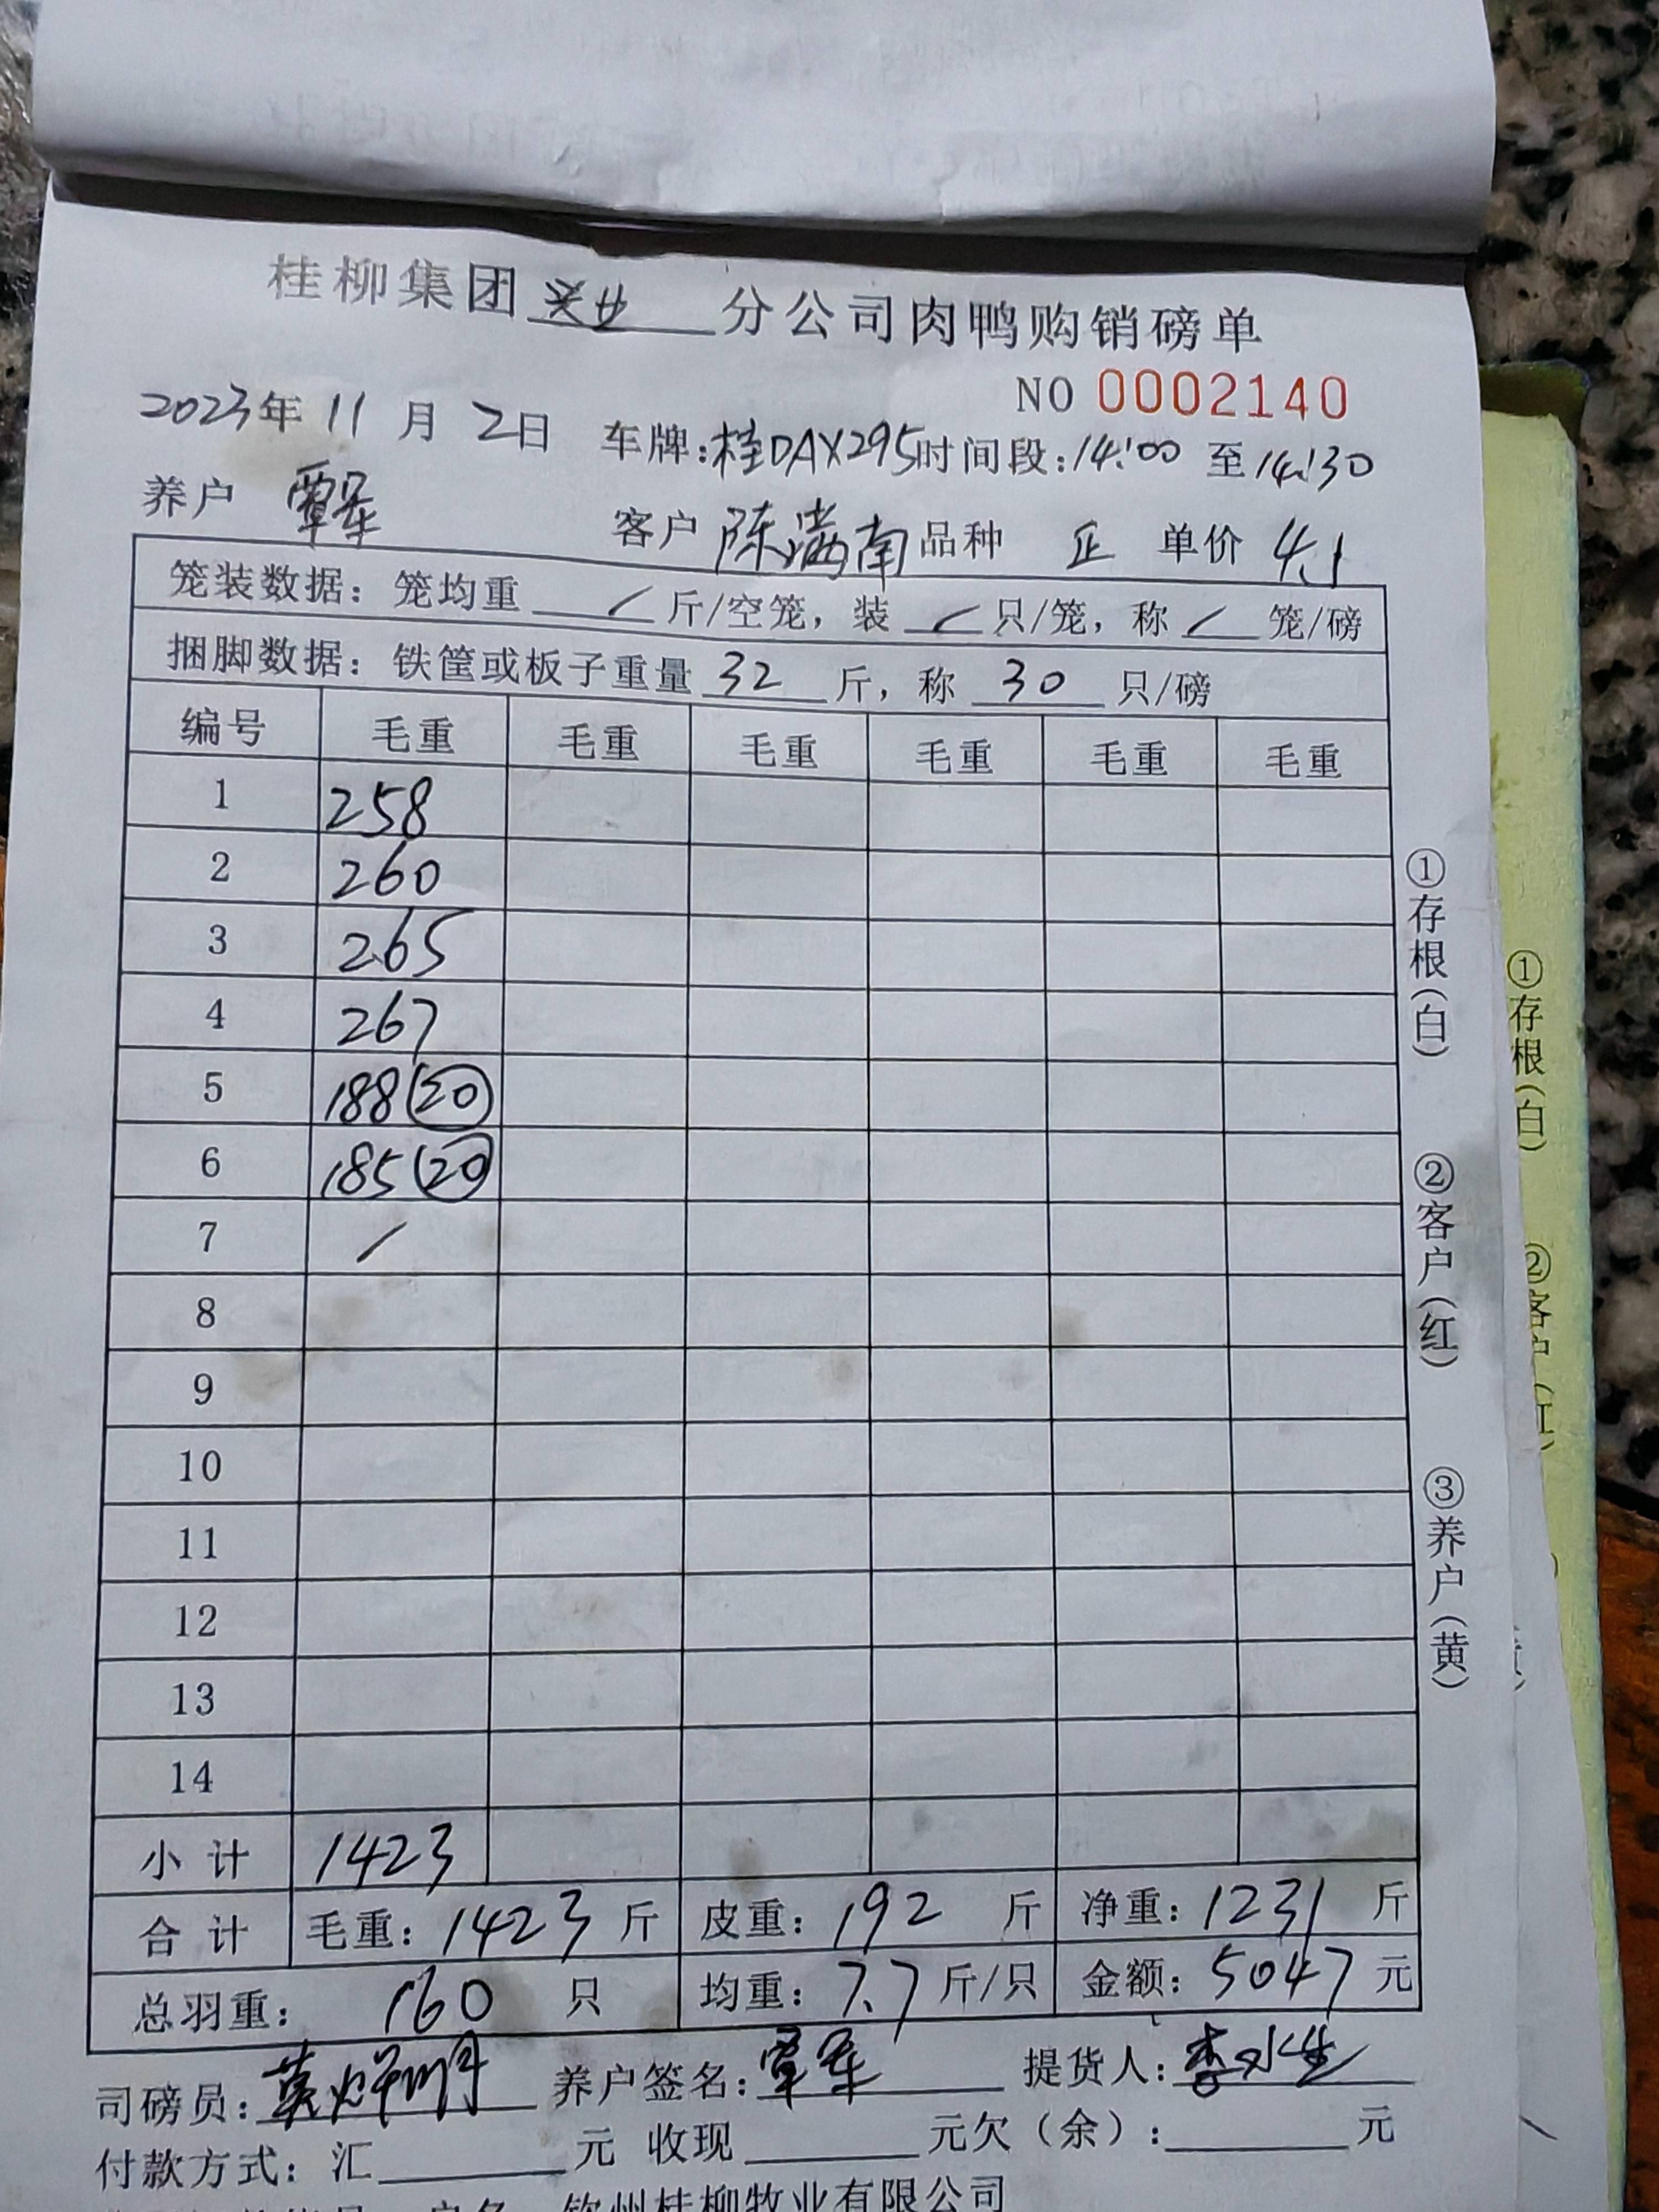 桂柳集团兴业分公司肉鸭购销磅单
NO 0002140
2023年 11 月 2日 车牌:桂DAX295时间段:14:00 至14:30
养户 覃军 客户 陈满南 品种 正 单价 4.1
笼装数据: 笼均重 / 斤/空笼, 装 / 只/笼, 称 / 笼/磅
捆脚数据: 铁筐或板子重量 32 斤, 称 30 只/磅
编号 毛重 毛重 毛重 毛重 毛重 毛重
1 258
2 260
3 265
4 267
5 188(20)
6 185(20)
7 /
8
9
10
11
12
13
14
小计 1423
合计 毛重: 1423 斤 皮重: 192 斤 净重: 1231 斤
总羽重: 160 只 均重: 7.7 斤/只 金额: 5047 元
司磅员: 养户签名: 覃军 提货人: 李水生
付款方式: 汇 元 收现 元欠(余): 元
户名 钦州桂柳牧业有限公司
①存根(白)
②客户(红)
③养户(黄)
①存根(白)
②客户(红)